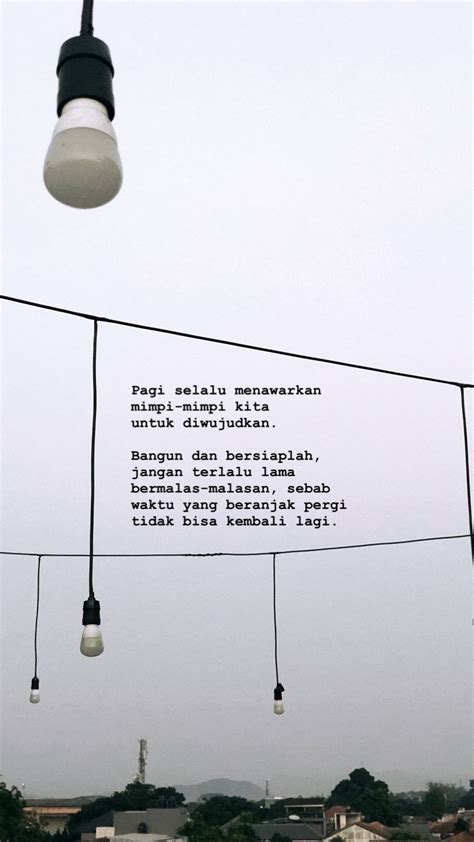 Pagi selalu menawarkan
mimpi-mimpi kita
untuk diwujudkan.
Bangun dan bersiaplah,
jangan terlalu lama
bermalas-malasan, sebab
waktu yang beranjak pergi
tidak bisa kembali lagi.